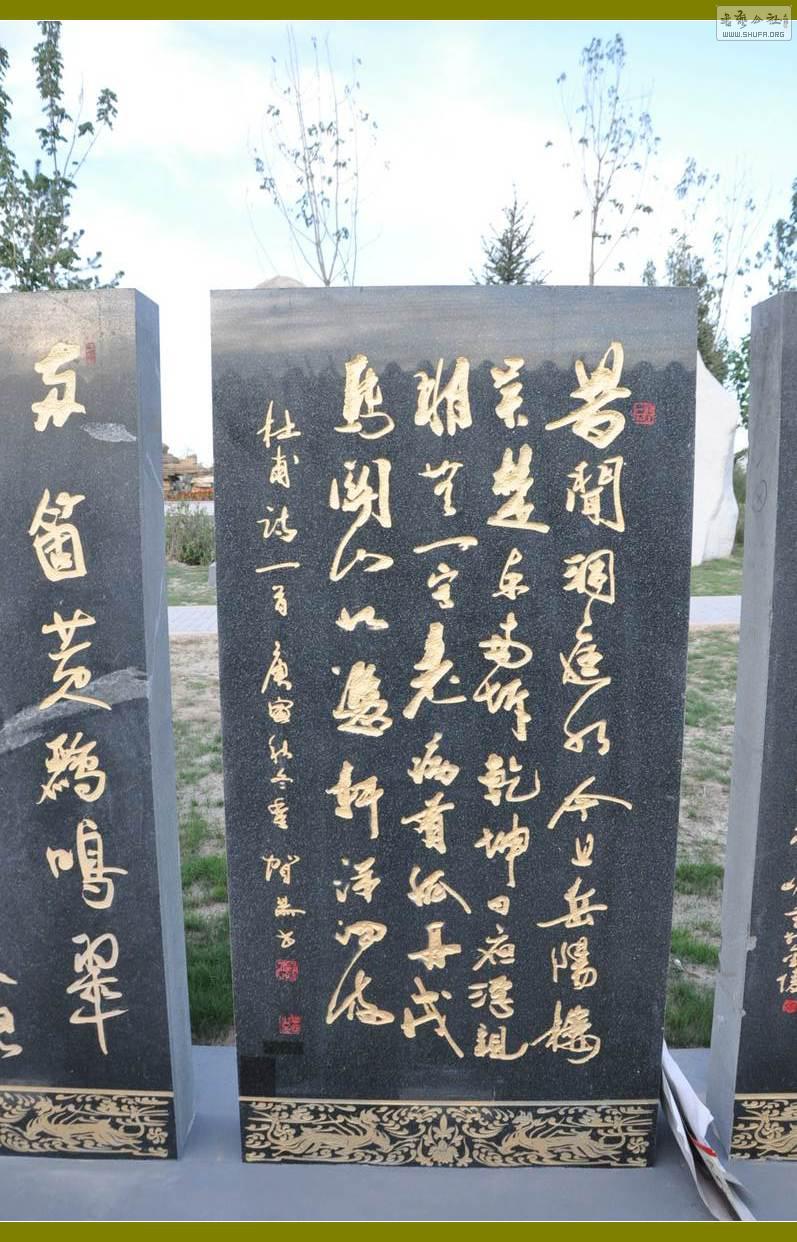 昔聞洞庭水今上岳陽樓
吴楚东南坼乾坤日夜浮親
朋無一字老病有孤舟戎
馬關山北憑軒涕泗流
杜甫詩一首庚寅秋冬
两箇黄鸝鳴翠
WWW.SHUFA.ORG